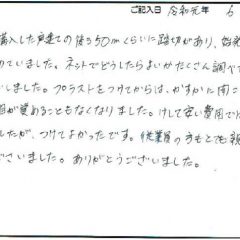 ご記入日 令和元年 6
購入した戸建ての後ろ50mくらいに踏切があり、始発
めていました。ネットでどうしたらよいかたくさん調べて
しました。プラストをつけてからは、かすかに聞こ
目が覚めることもなくなりました。けして安い費用で
したが、つけてよかったです。従業員の方もとても親
ございました。ありがとうございました。